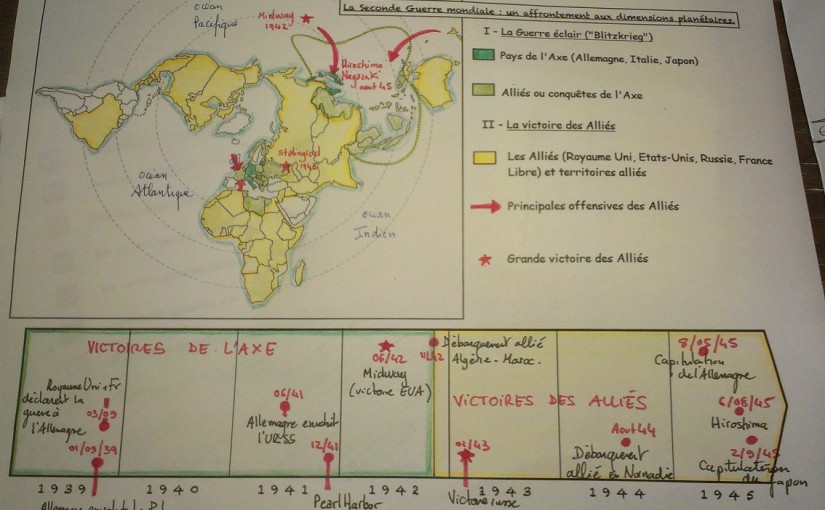 La Seconde Guerre mondiale : un affrontement aux dimensions planétaires.
océan
Pacifique
Midway
1942
Hiroshima
Nagazaki
aout 45
Stalingrad
1943
océan
Atlantique
océan
Indien
I - La Guerre éclair ("Blitzkrieg")
Pays de l'Axe (Allemagne, Italie, Japon)
Alliés ou conquêtes de l'Axe
II - La victoire des Alliés
Les Alliés (Royaume Uni, Etats-Unis, Russie, France
Libre) et territoires alliés
Principales offensives des Alliés
Grande victoire des Alliés
VICTOIRES DE L'AXE
Royaume Uni + Fr
déclarent la
guerre à
l'Allemagne
03/09
01/09/39
06/41
Allemagne envahit
l'URSS
12/41
06/42
Midway
(victoire EUA)
11/42
Débarquement allié
Algérie - Maroc.
VICTOIRES DES ALLIÉS
02/43
Aout 44
Débarquement
allié en Normandie
8/05/45
Capitulation
de l'Allemagne
6/08/45
Hiroshima
2/9/45
Capitulation
du Japon
1939 1940 1941 1942 1943 1944 1945
Pearl Harbor
Victoire russe